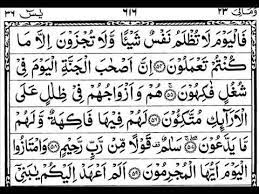 وَمَالِیَ ٢٣ ٦١٧ یٰسٓ ٣٦
فَالْیَوْمَ لَا تُظْلَمُ نَفْسٌ شَیْـًٔا وَّلَا تُجْزَوْنَ اِلَّا مَا
كُنْتُمْ تَعْمَلُوْنَ ﴿٥٤﴾ اِنَّ اَصْحٰبَ الْجَنَّةِ الْیَوْمَ فِیْ
شُغُلٍ فٰكِهُوْنَ ﴿٥٥﴾ هُمْ وَاَزْوَاجُهُمْ فِیْ ظِلٰلٍ عَلَی
الْاَرَآئِكِ مُتَّكِـُٔوْنَ ﴿٥٦﴾ لَهُمْ فِیْهَا فَاكِهَةٌ وَّلَهُمْ
مَّا یَدَّعُوْنَ ﴿٥٧﴾ سَلٰمٌ قَوْلًا مِّنْ رَّبٍّ رَّحِیْمٍ ﴿٥٨﴾ وَامْتَازُوا
الْیَوْمَ اَیُّهَا الْمُجْرِمُوْنَ ﴿٥٩﴾ اَلَمْ اَعْهَدْ اِلَیْكُمْ یٰبَنِیْۤ